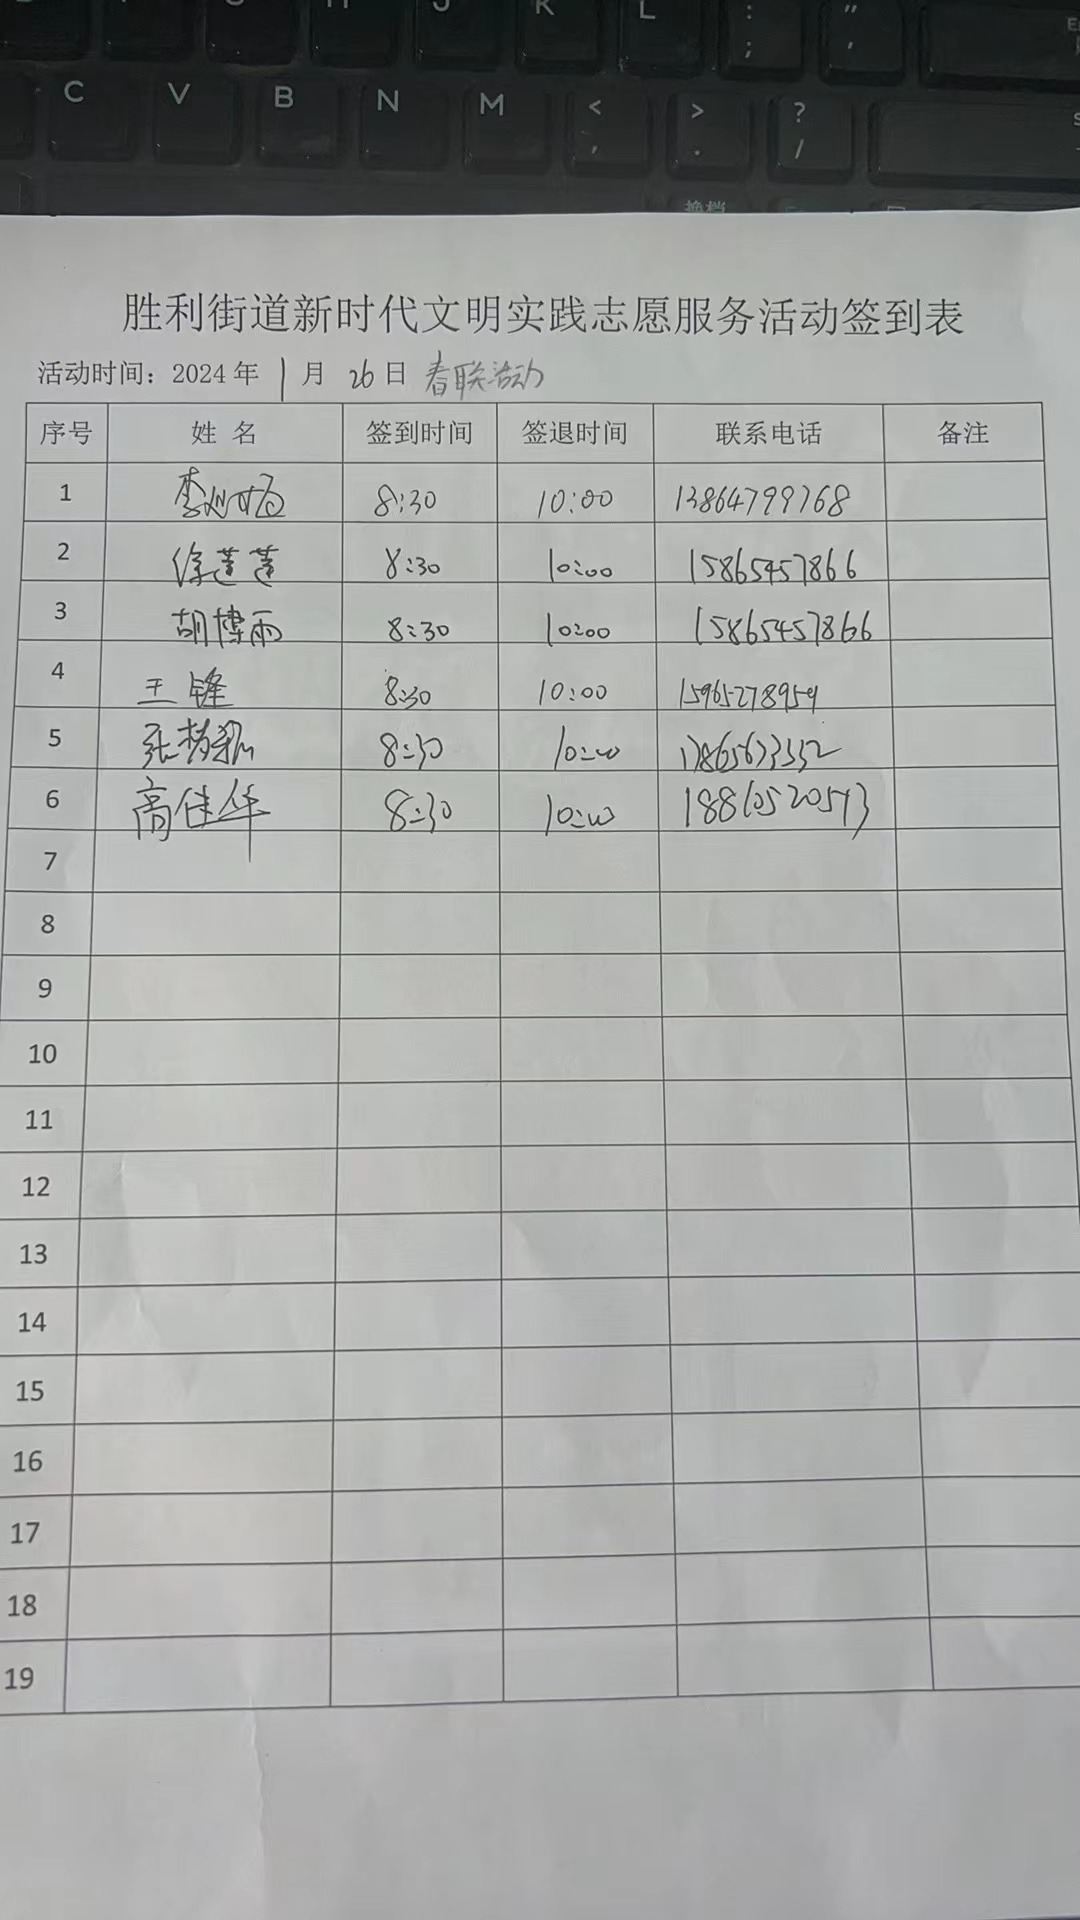 C V B N M < , > . ? /
K L : ; " '
换档
胜利街道新时代文明实践志愿服务活动签到表
活动时间：2024 年 1 月 26 日 春联活动
序号 姓 名 签到时间 签退时间 联系电话 备注
1 8:30 10:00 13864799768
2 徐莲莲 8:30 10:00 15865457866
3 胡博雨 8:30 10:00 15865457866
4 王锋 8:30 10:00 15965278959
5 8:30 10:00
6 高佳华 8:30 10:00 18810520543
7
8
9
10
11
12
13
14
15
16
17
18
19